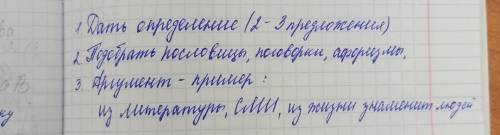 1. Дать определение (2-3 предложения)
2. Подобрать пословицы, поговорки, афоризмы.
3. Аргумент - пример :
из литературы, СМИ, из жизни знаменит людей